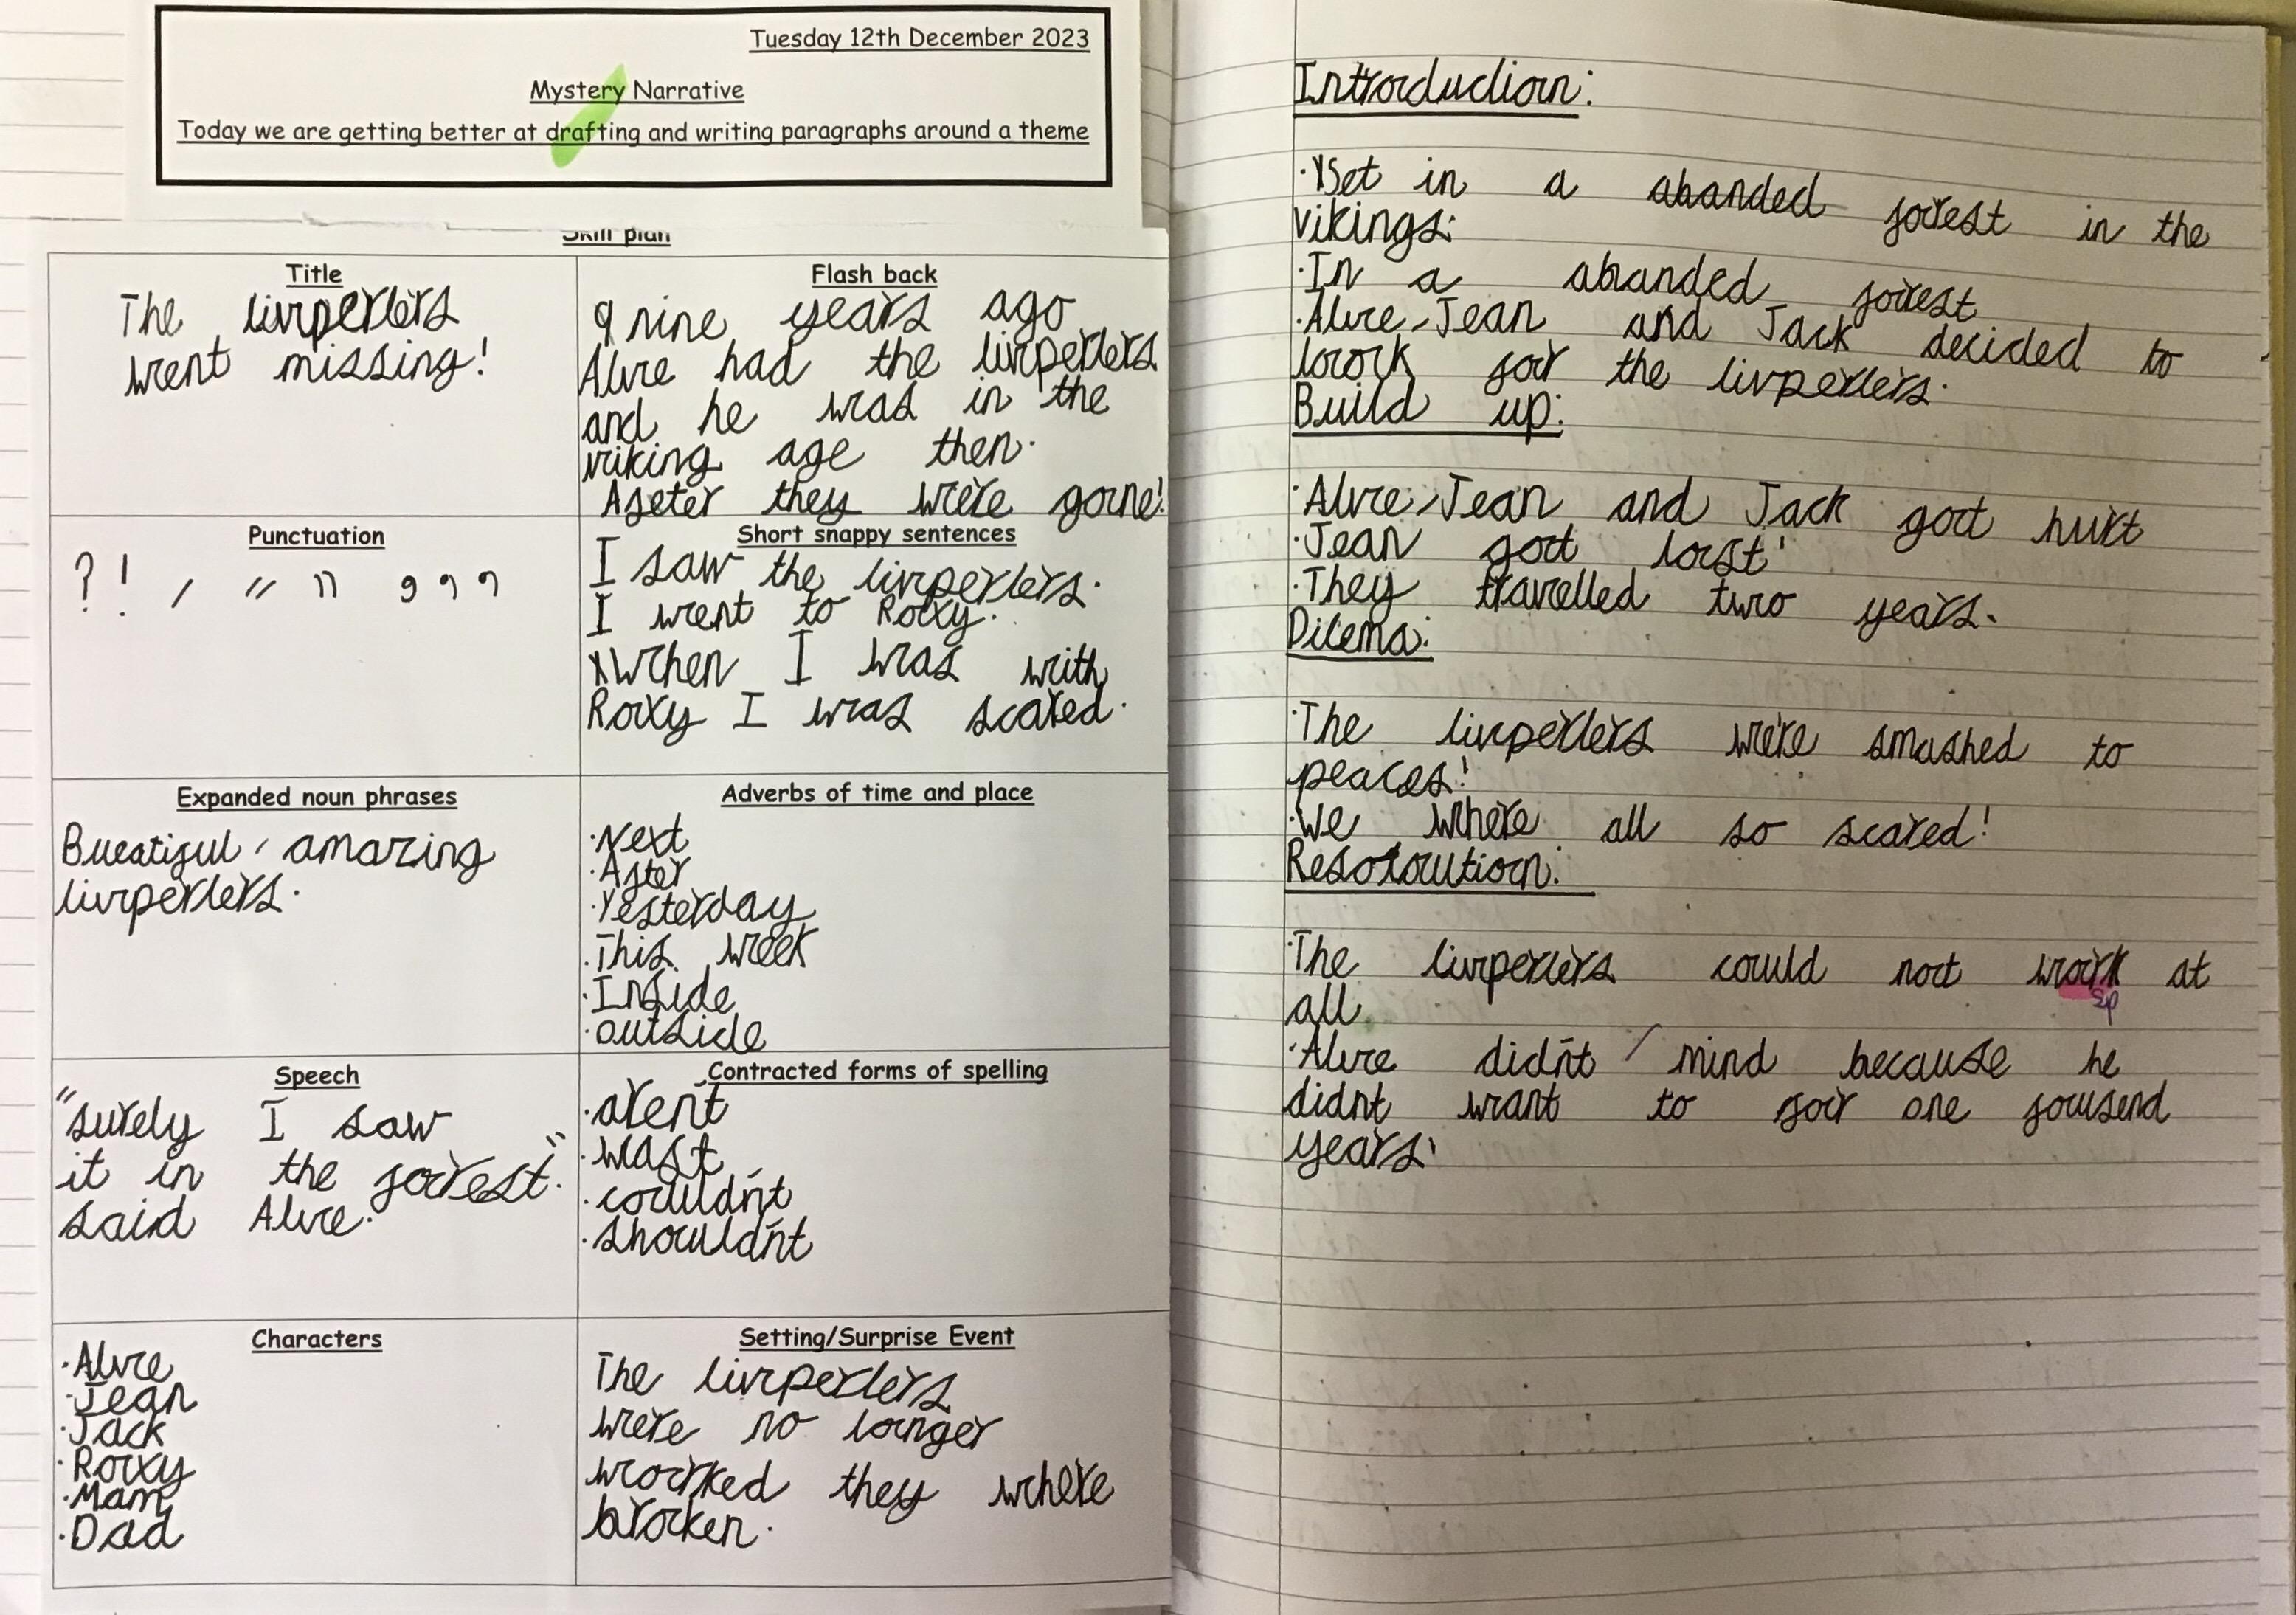 Tuesday 12th December 2023
Mystery Narrative
Today we are getting better at drafting and writing paragraphs around a theme
Skill plan
Title
The livperlers
went missing!
Flash back
9 nine years ago
Alve had the livperlers
and he was in the
viking age then.
Afeter they were gone!
Punctuation
? ! , “ ” , , ,
Short snappy sentences
I saw the livperlers.
I went to Roxy.
When I was with
Roxy I was scared.
Expanded noun phrases
Bueatiful, amazing
livperlers.
Adverbs of time and place
·Next
·After
·Yesterday
·This week
·Inside
·outside
Speech
"surely I saw
it in the forrest."
said Alve.
Contracted forms of spelling
·aren't
·wast
·couldn't
·shouldn't
Characters
·Alve
·Jean
·Jack
·Roxy
·Mam
·Dad
Setting/Surprise Event
The livperlers
were no longer
worked they where
brocken.
Introduction:
·Set in a abanded forrest in the
vikings.
·In a abanded forrest
·Alve, Jean and Jack decided to
look for the livperlers.
Build up:
·Alve, Jean and Jack got hurt
·Jean got lost!
·They travelled two years.
Dilema:
·The livperlers were smashed to
peaces!
·We where all so scared!
Resoloution:
·The livperlers could not work at
sp
all.
·Alve didn't mind because he
didnt want to for one fousend
years.